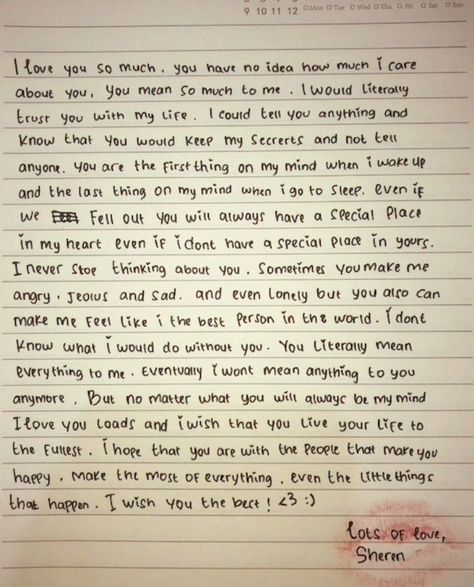 9 10 11 12 □Mon □Tue □Wed □Thu □Fri □Sat □Sun
I love you so much. you have no idea how much i care
about you, you mean so much to me. I would literally
trust you with my life. I could tell you anything and
know that you would keep my secrerts and not tell
anyone. you are the first thing on my mind when i wake up
and the last thing on my mind when i go to sleep. even if
we fell out you will always have a special place
in my heart even if i dont have a special place in yours.
I never stop thinking about you. sometimes you make me
angry. jeolus and sad. and even lonely but you also can
make me feel like i the best person in the world. i dont
know what i would do without you. You literally mean
everything to me. eventually i wont mean anything to you
anymore. But no matter what you will always be my mind
I love you loads and i wish that you live your life to
the fullest. i hope that you are with the people that make you
happy. make the most of everything. even the little things
that happen. I wish you the best! <3 :)
lots of love,
Sheren